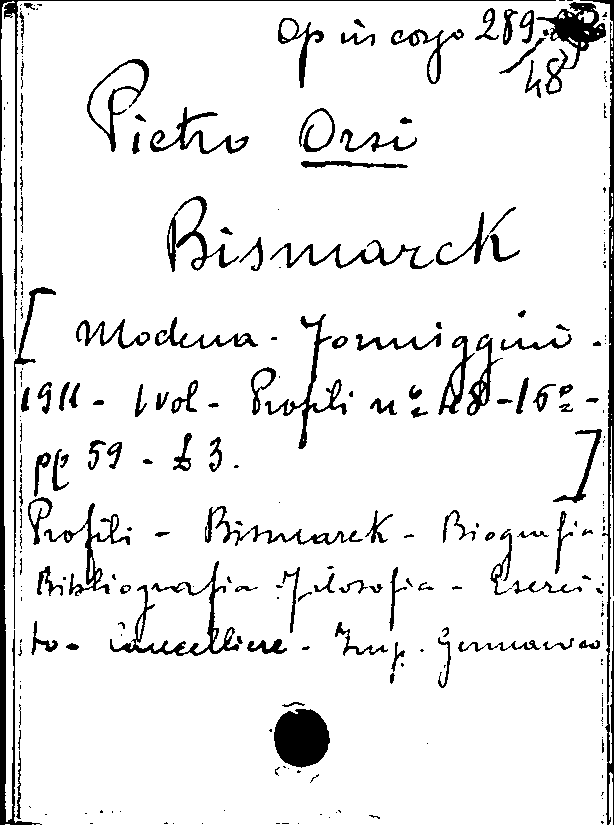 Op in corso 289
48
Pietro Orsi
Bismarck
[ Modena - Formiggini -
1911 - 1 vol - Profili nº 48 - 16º -
pp 59 - £ 3. ]
Profili - Bismarck - Biografia -
Bibliografia - Filosofia - Eserci-
to - Cancelliere - Imp. Germanico